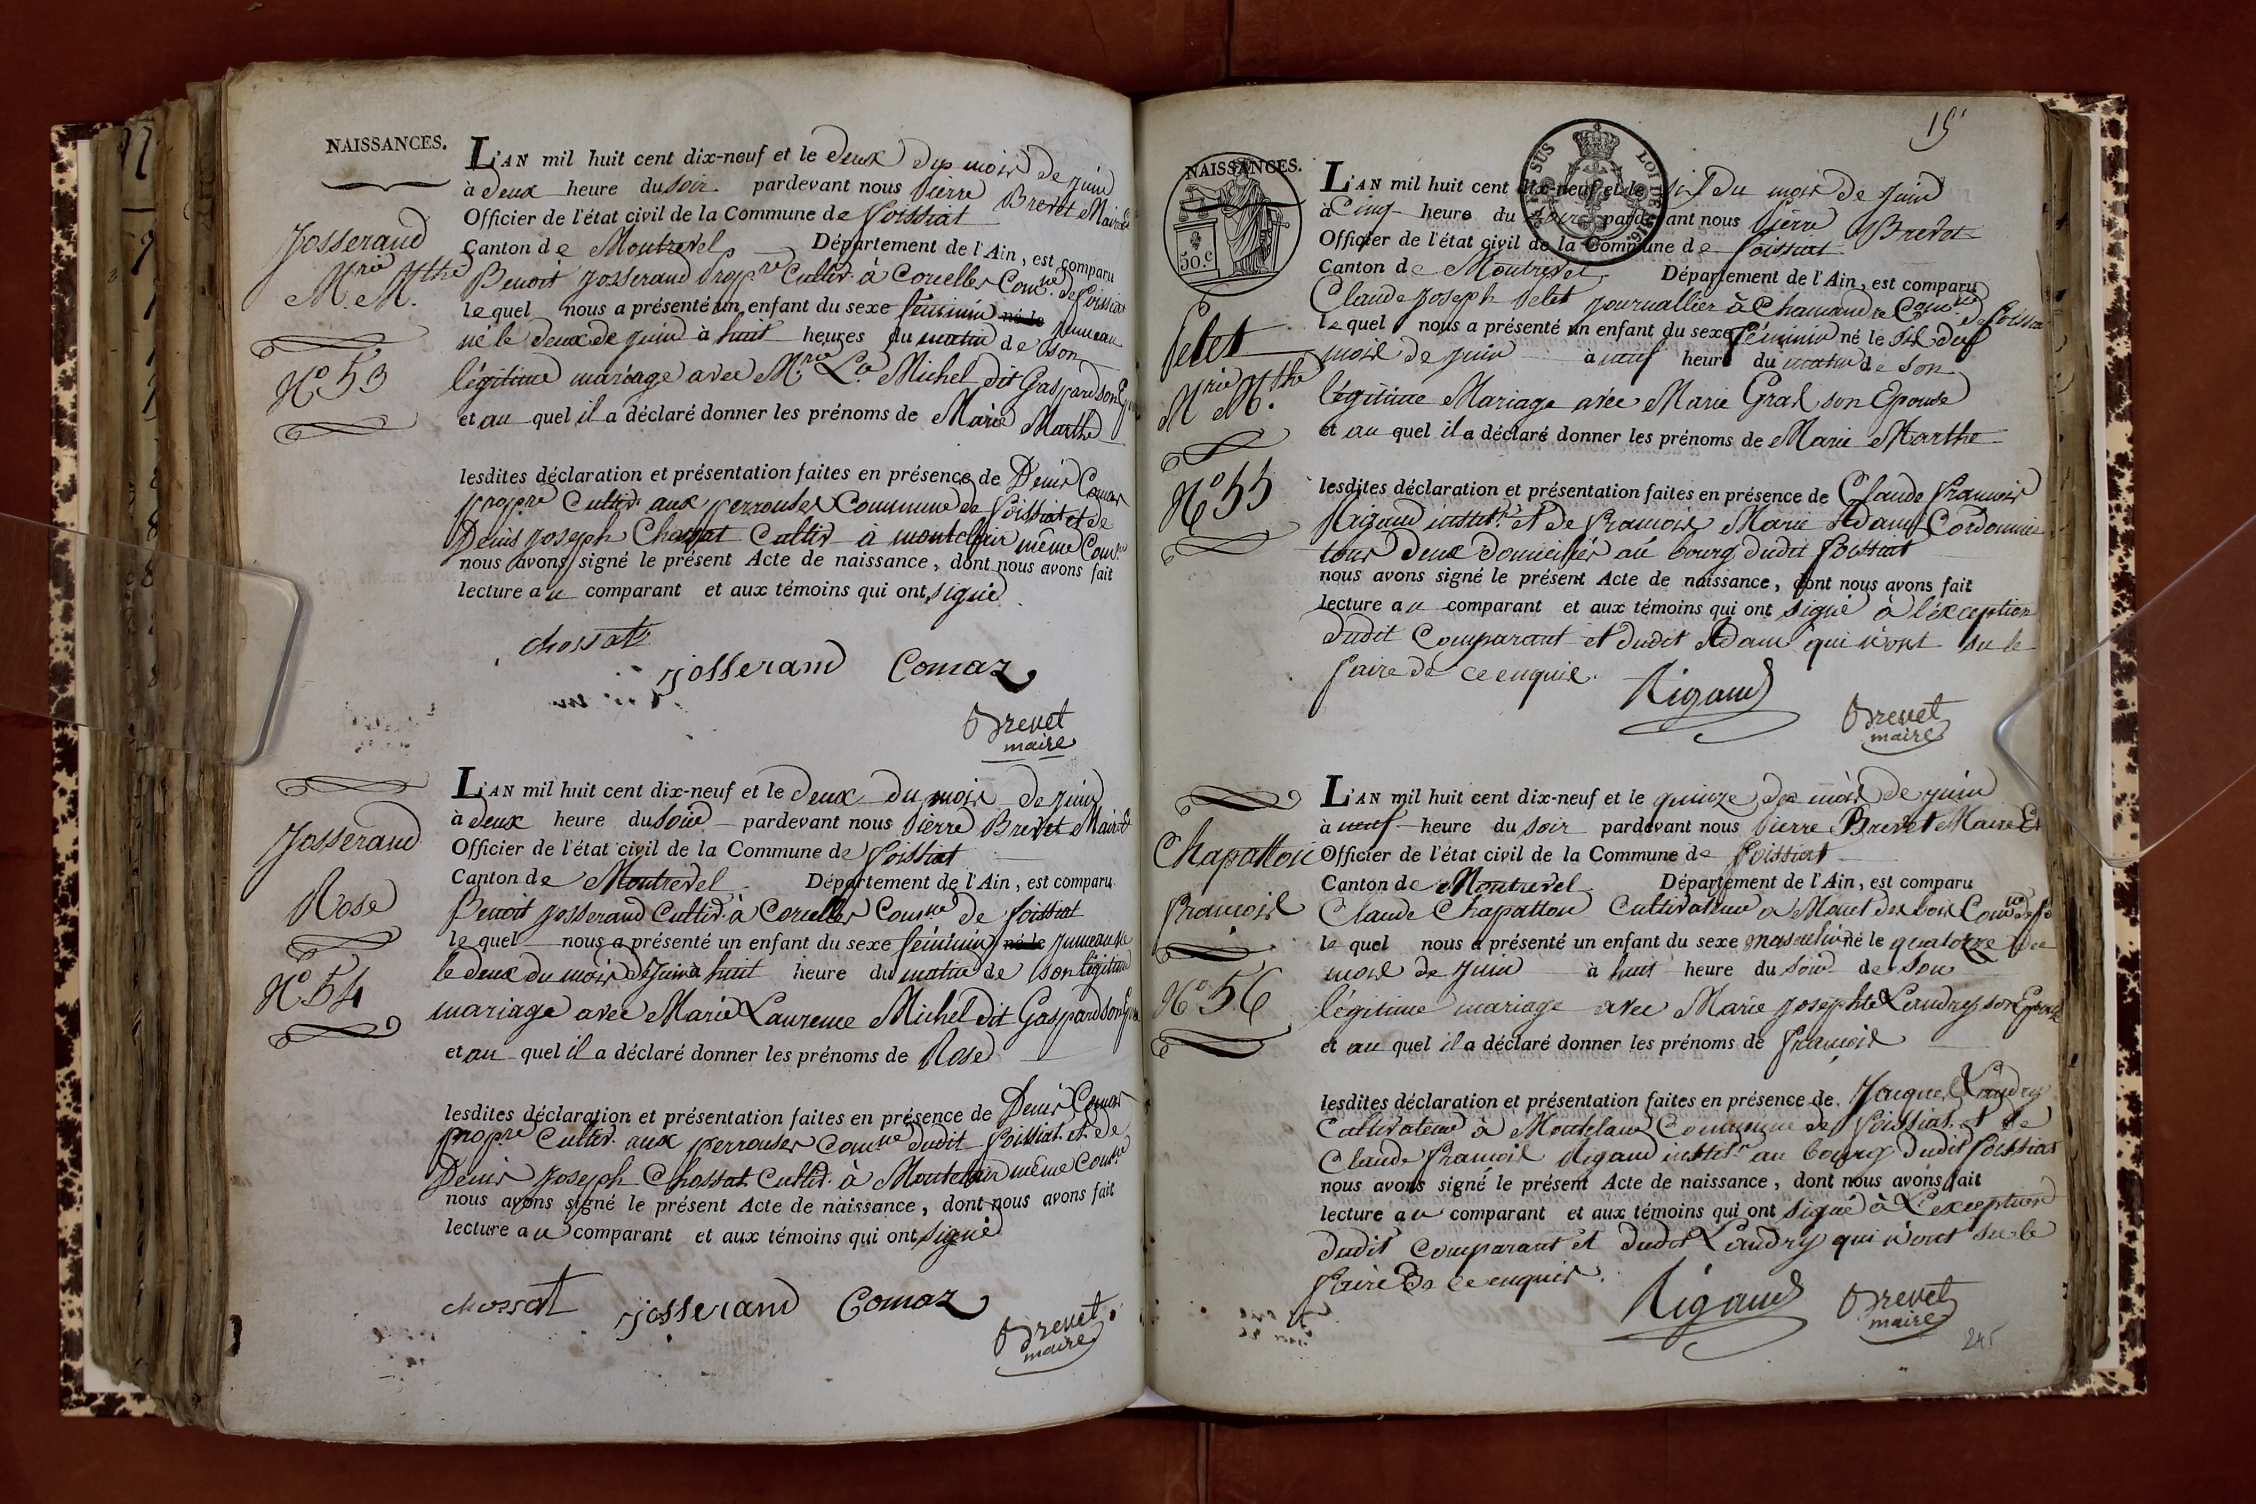 NAISSANCES.
Josserand
Mrie Mthe
No 53
L'AN mil huit cent dix-neuf et le deux du mois de juin
à deux heure du soir pardevant nous Pierre Brevet Maire Et
Officier de l'état civil de la Commune de foissiat
Canton de Montrevel Département de l'Ain, est comparu
Benoit Josserand propre Cultivr à Corcelles Comne de foissiat
lequel nous a présenté un enfant du sexe féminin né le jumeau
né le deux de juin à huit heures du matin de son
légitime mariage avec Mrie Lce Michel dit Gaspard son
et au quel il a déclaré donner les prénoms de Marie Marthe
lesdites déclaration et présentation faites en présence de Denis Comas
propre Cultivr aux perrouses Commune de foissiat et de
Denis Joseph Chossat Cultivr à montclair même Comne
nous avons signé le présent Acte de naissance, dont nous avons fait
lecture au comparant et aux témoins qui ont signé
chossat
josserand Comaz
Brevet
maire
Josserand
Rose
No 54
L'AN mil huit cent dix-neuf et le deux du mois de juin
à deux heure du soir pardevant nous Pierre Brevet Maire Et
Officier de l'état civil de la Commune de foissiat
Canton de Montrevel Département de l'Ain, est comparu
Benoit Josserand Cultivr à Corcelles Comne de foissiat
lequel nous a présenté un enfant du sexe féminin né le jumeau né
le deux du mois de juin à huit heure du matin de son légitime
mariage avec Marie Laurence Michel dit Gaspard son
et au quel il a déclaré donner les prénoms de Rose
lesdites déclaration et présentation faites en présence de Denis Comas
propre Cultivr aux perrouses Comne dudit foissiat et de
Denis Joseph Chossat Cultivr à Montclair même Comne
nous avons signé le présent Acte de naissance, dont nous avons fait
lecture au comparant et aux témoins qui ont signé
chossat josserand Comaz
Brevet
maire
15
NAISSANCES.
50.c
EN SUS LOI DE 1816.
Pelet
Mrie Mthe
No 55
L'AN mil huit cent dix-neuf et le six du mois de juin
à Cinq heure du soir pardevant nous Pierre Brevet
Officier de l'état civil de la Commune de foissiat
Canton de Montrevel Département de l'Ain, est comparu
Claude Joseph Pelet journallier à Chamandre Comne de foissiat
lequel nous a présenté un enfant du sexe féminin né le six du
mois de juin à neuf heure du matin de son
légitime Mariage avec Marie Gral son Epouse
et au quel il a déclaré donner les prénoms de Marie Marthe
lesdites déclaration et présentation faites en présence de Claude françois
Rigaud institr et de françois Marie Adam Cordonnier
tous deux domiciliés au bourg dudit foissiat
nous avons signé le présent Acte de naissance, dont nous avons fait
lecture au comparant et aux témoins qui ont signé à l'éxception
dudit Comparant et dudit Adam qui n'ont su le
faire de ce enquis.
Rigaud
Brevet
maire
Chapatton
françois
No 56
L'AN mil huit cent dix-neuf et le quinze du mois de juin
à neuf heure du soir pardevant nous Pierre Brevet Maire Et
Officier de l'état civil de la Commune de foissiat
Canton de Montrevel Département de l'Ain, est comparu
Claude Chapatton Cultivateur à Mont des bois Comne de fo
lequel nous a présenté un enfant du sexe masculin né le quatorze du
mois de juin à huit heure du soir de son
légitime mariage avec Marie Josephte Landry son Epouse
et au quel il a déclaré donner les prénoms de françois
lesdites déclaration et présentation faites en présence de Jacques Landry
Cultivateur à Montclair Commune de foissiat et de
Claude françois Rigaud institr au bourg dudit foissiat
nous avons signé le présent Acte de naissance, dont nous avons fait
lecture au comparant et aux témoins qui ont signé à L'exception
dudit comparant et dudit Landry qui n'ont su le
faire de ce enquis.
Rigaud
Brevet
maire
245